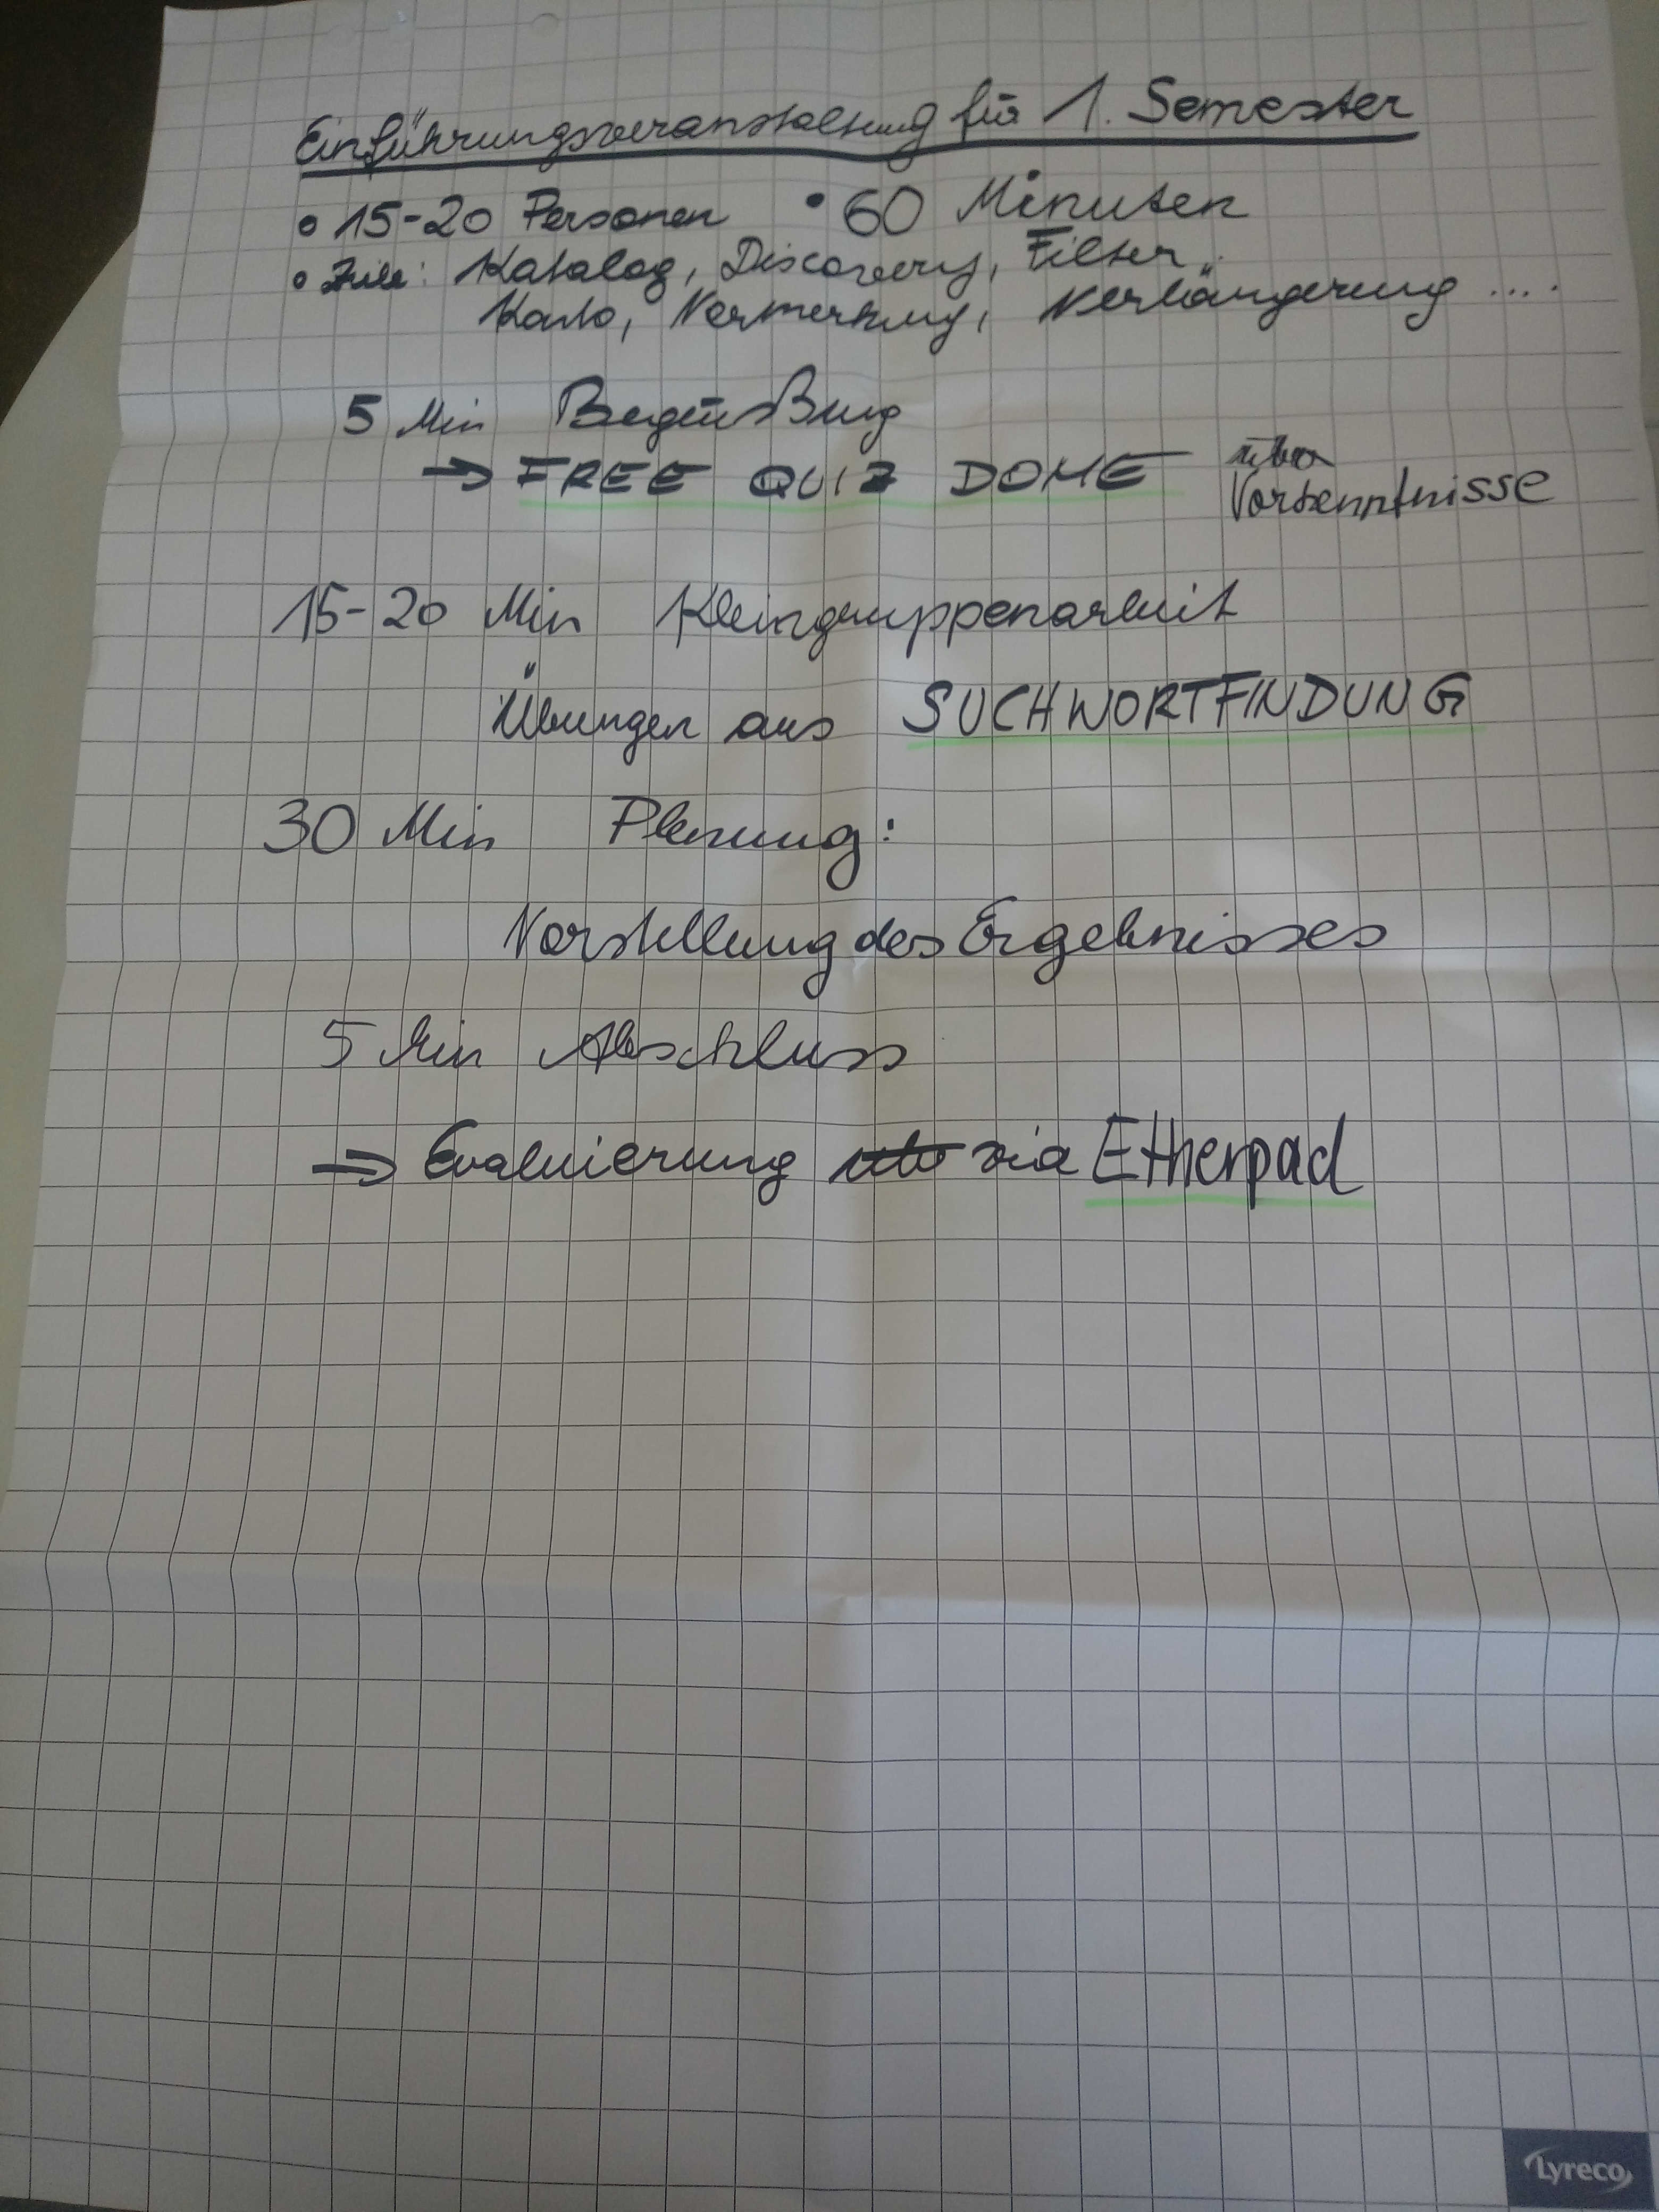 Einführungsveranstaltung für 1. Semester
• 15-20 Personen • 60 Minuten
• Ziele: Katalog, Discovery, Filter,
Konto, Vormerkung, Verlängerung ....
5 Min Begrüßung
→ FREE QUIZ DOME über
Vorkenntnisse
15-20 Min Kleingruppenarbeit
Übungen aus SUCHWORTFINDUNG
30 Min Plenung:
Vorstellung des Ergebnisses
5 Min Abschluss
⇒ Evaluierung via Etherpad
Lyreco